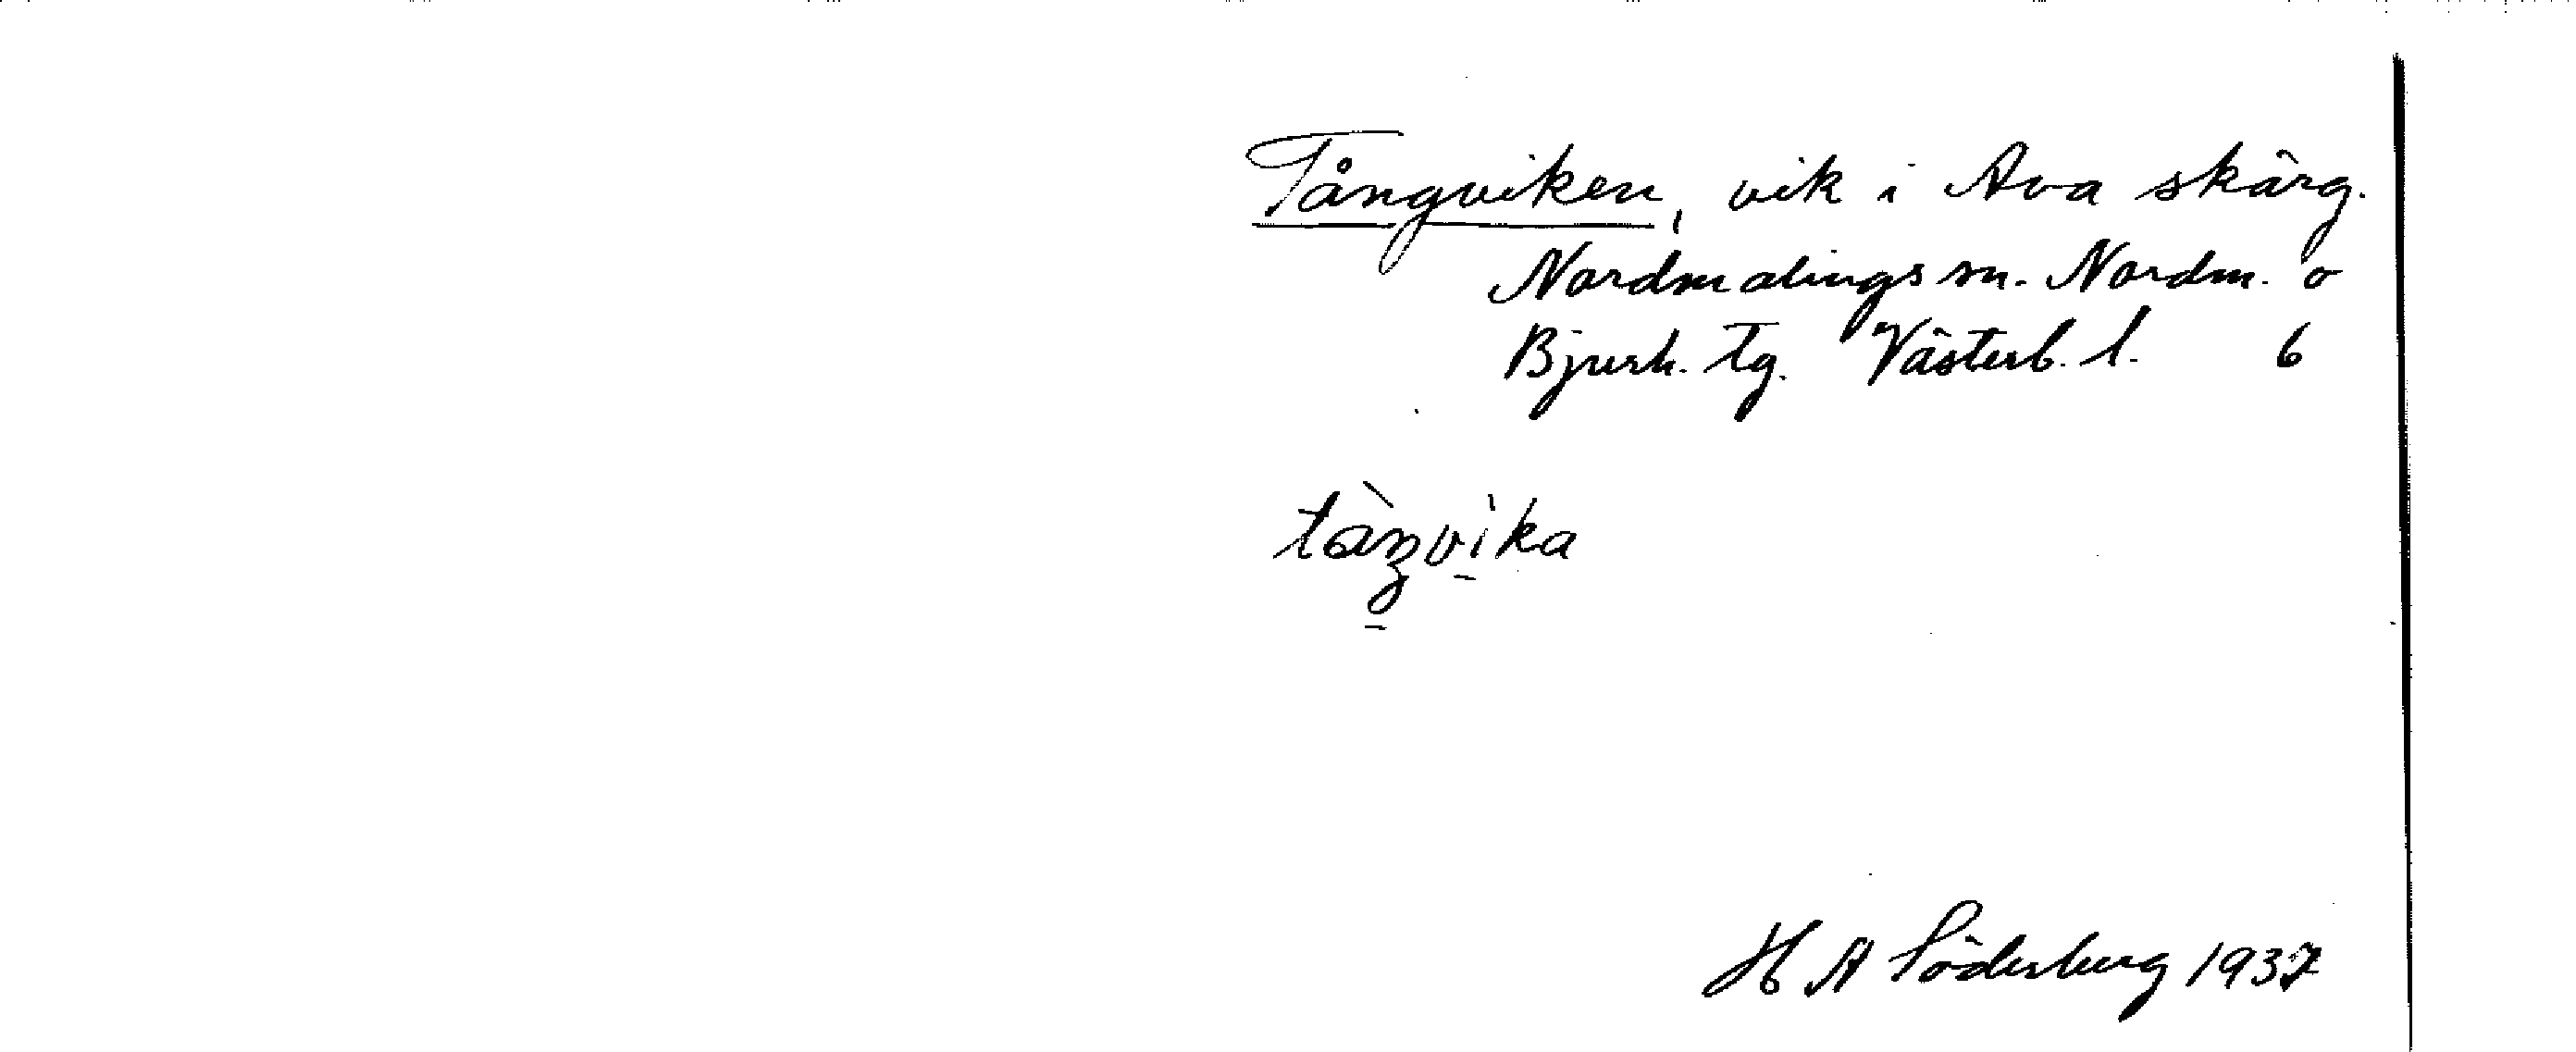 Tångviken, vik i Ava skärg.
Nordmalings sn. Nordm. o
Bjurh. tg. Västerb. l. 6
tàŋvika
H A Söderberg 1937